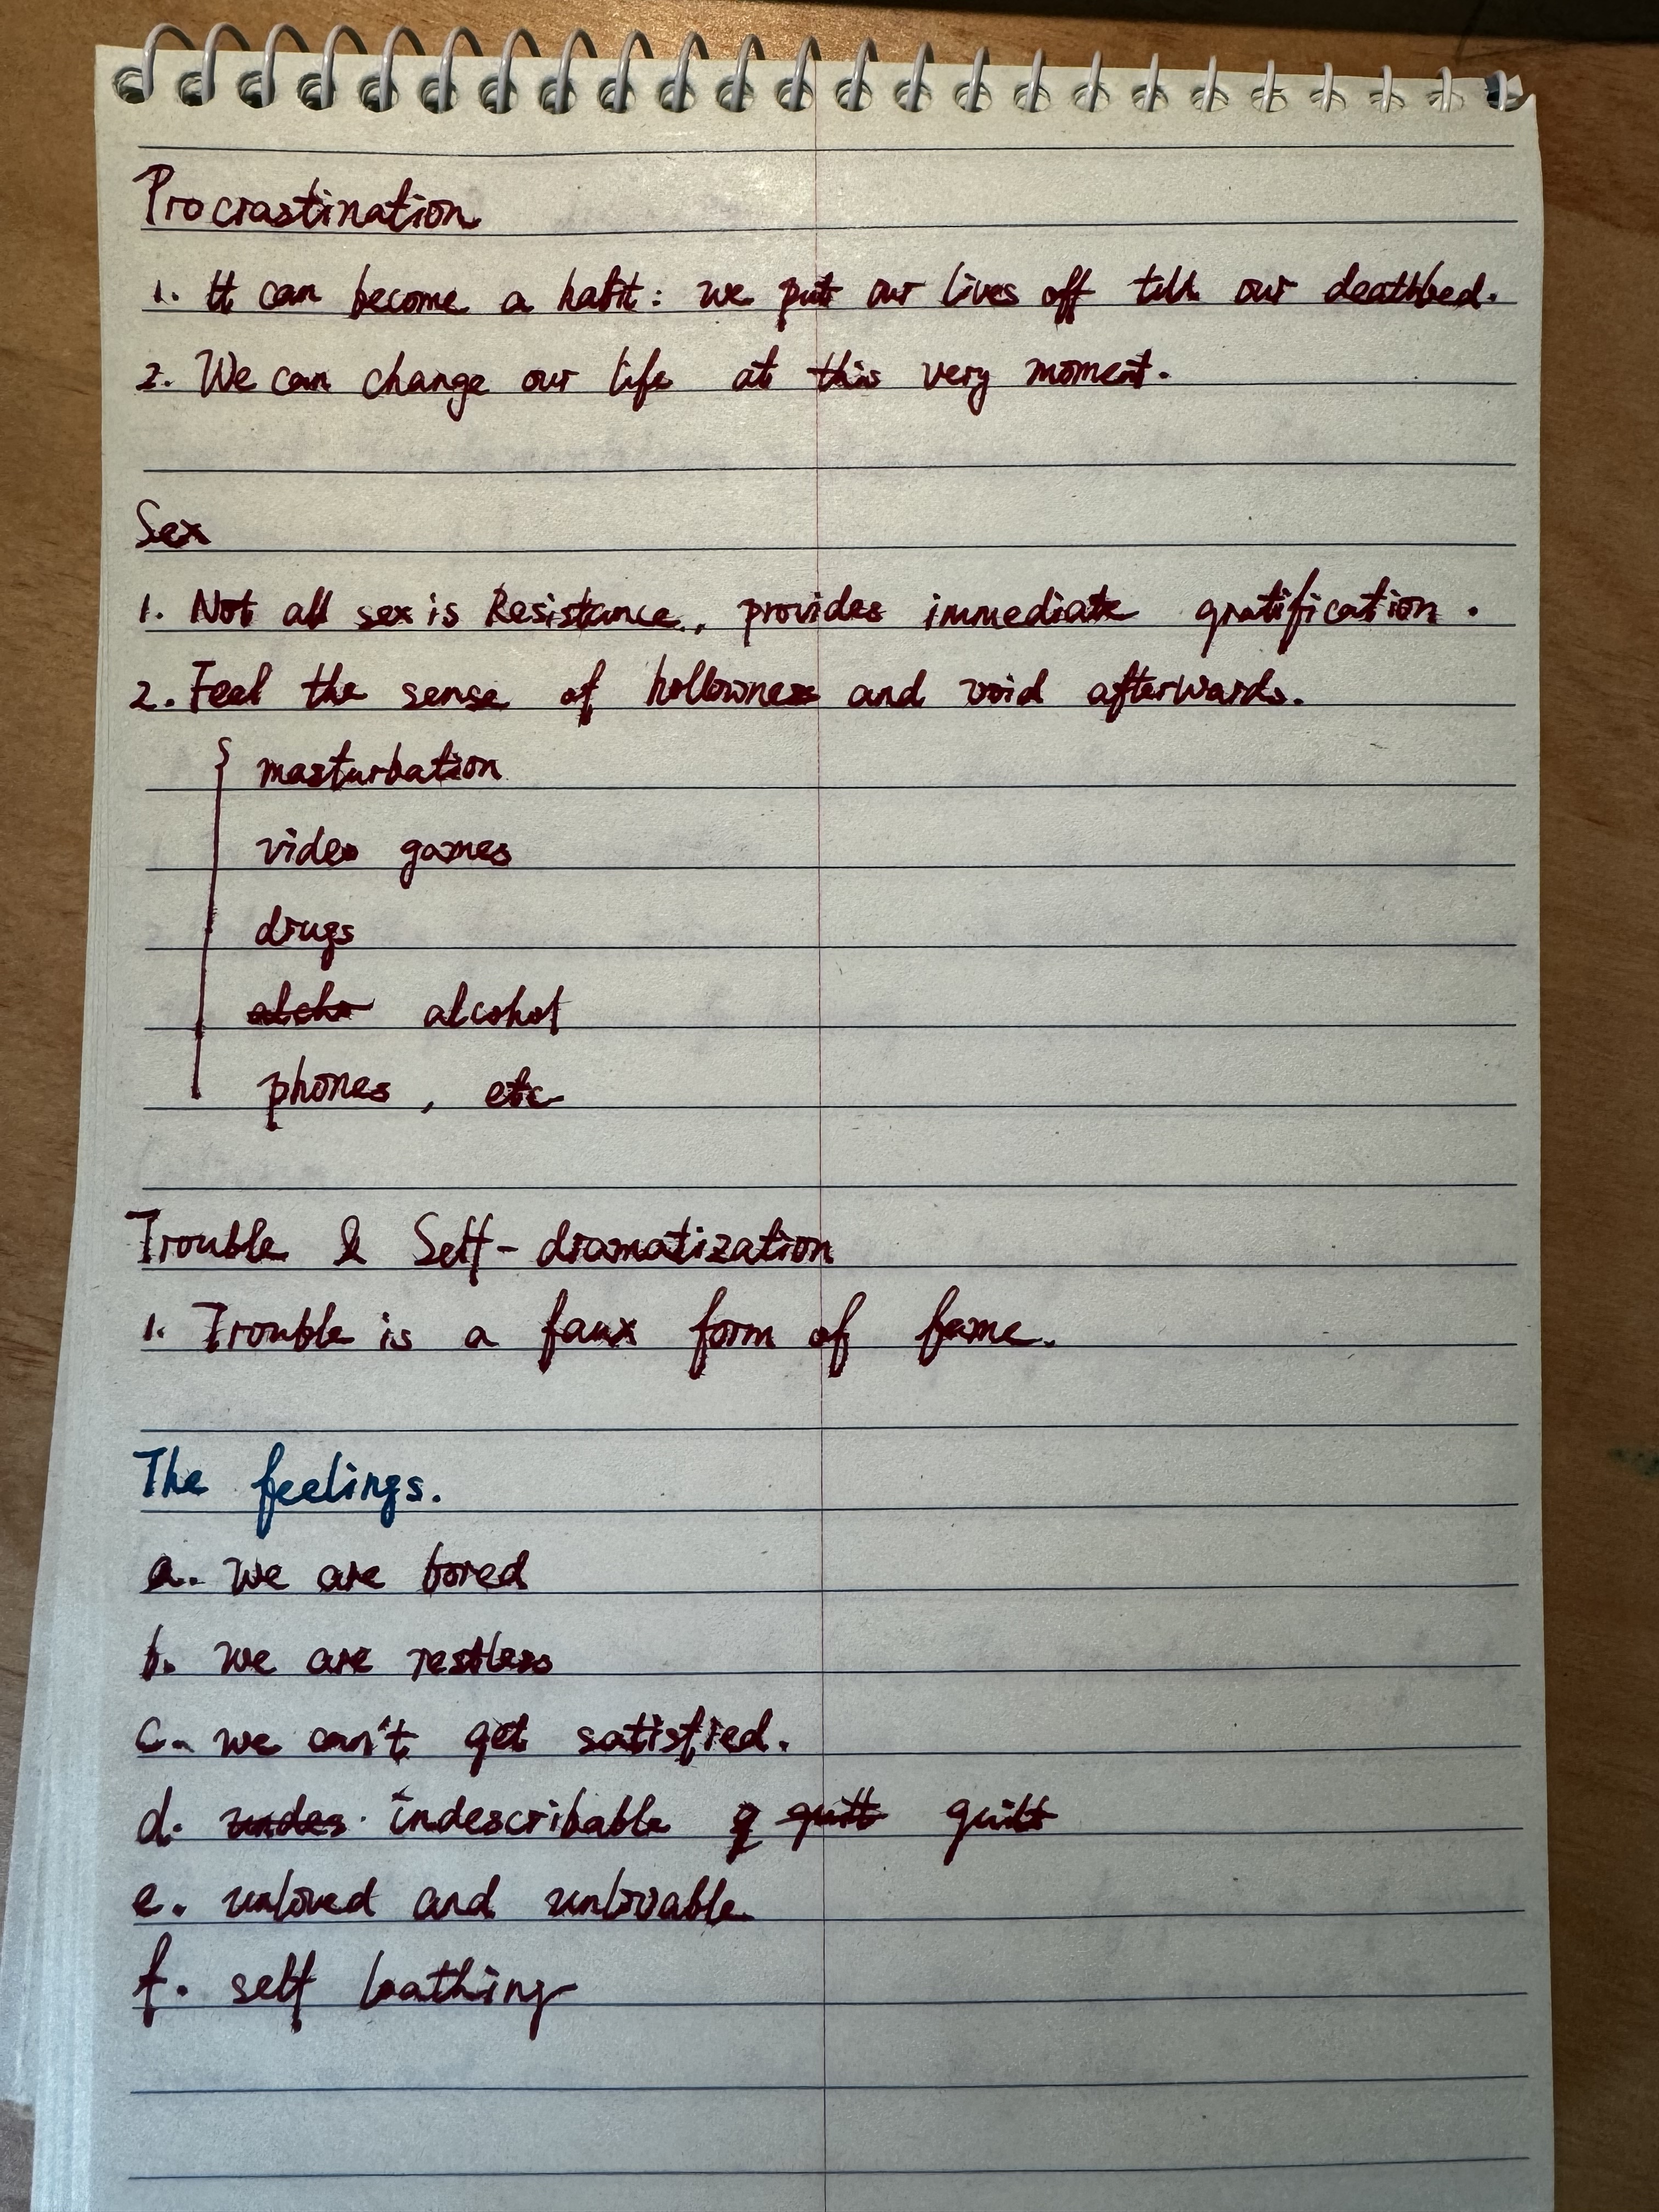 Procrastination
1. It can become a habit: we put our lives off till our deathbed.
2. We can change our life at this very moment.
Sex
1. Not all sex is Resistance, provides immediate gratification.
2. Feel the sense of hollowness and void afterwards.
masturbation
video games
drugs
alcho alcohol
phones, etc
Trouble & Self-dramatization
1. Trouble is a faux form of fame.
The feelings.
a. we are bored
b. we are restless
c. we can't get satisfied.
d. undes. indescribable g quitt guilt
e. unloved and unlovable
f. self loathing